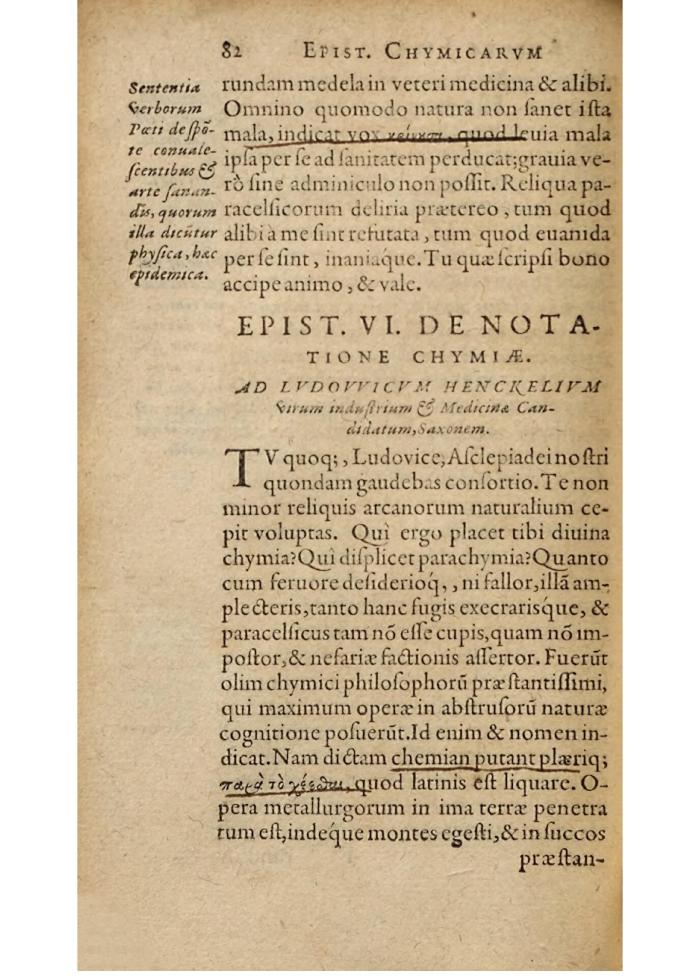 82 EPIST. CHYMICARVM
Sententia
verborum
Pœti despō-
te conuale-
scentibus &
arte sanan-
dis, quorum
illa dicūtur
physica, hæc
epidemica.
rundam medela in veteri medicina & alibi.
Omnino quomodo natura non sanet ista
mala, indicat vox , quod leuia mala
ipsa per se ad sanitatem perducat; grauia ve-
rò sine adminiculo non possit. Reliqua pa-
racelsicorum deliria prætereo, tum quod
alibi à me sint refutata, tum quod euanida
per se sint, inaniaque. Tu quæ scripsi bono
accipe animo, & vale.
EPIST. VI. DE NOTA-
TIONE CHYMIÆ.
AD LVDOVVICVM HENCKELIVM
virum industrium & Medicinæ Can-
didatum, Saxonem.
TV quoq;, Ludovice, Asclepiadei nostri
quondam gaudebas consortio. Te non
minor reliquis arcanorum naturalium ce-
pit voluptas. Quì ergo placet tibi diuina
chymia? Quì displicet parachymia? Quanto
cum feruore desiderioq,, ni fallor, illā am-
plecteris, tanto hanc fugis execrarisque, &
paracelsicus tam nō esse cupis, quam nō im-
postor, & nefariæ factionis assertor. Fuerūt
olim chymici philosophorū præstantissimi,
qui maximum operæ in abstrusorū naturæ
cognitione posuerūt. Id enim & nomen in-
dicat. Nam dictam chemian putant plæriq;
παρὰ τὸ χέεσθαι, quod latinis est liquare. O-
pera metallurgorum in ima terræ penetra
tum est, indeque montes egesti, & in succos
præstan-